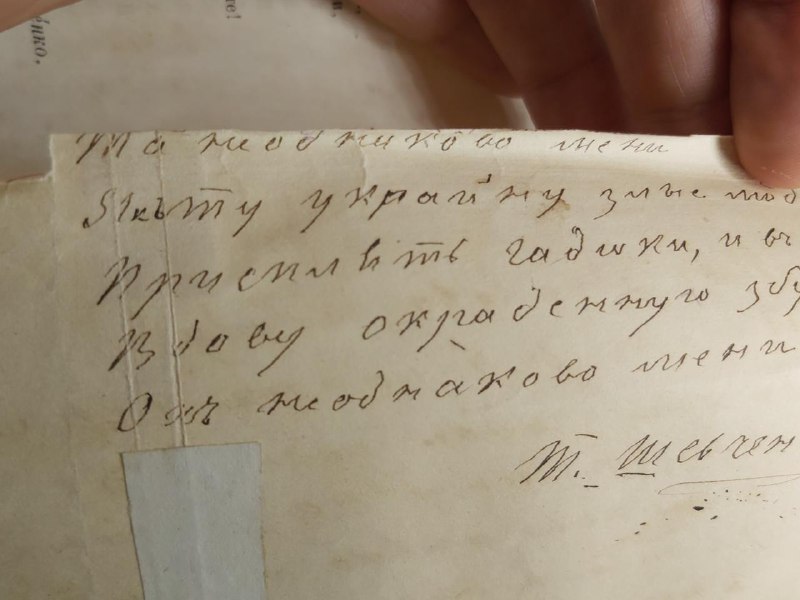 Та неоднаково мени
Якъ ту украйну злые люд
Присплѣть гадюки, и въ
Вдову окраденную збу
Охъ неоднаково мени
Т. Шевчен